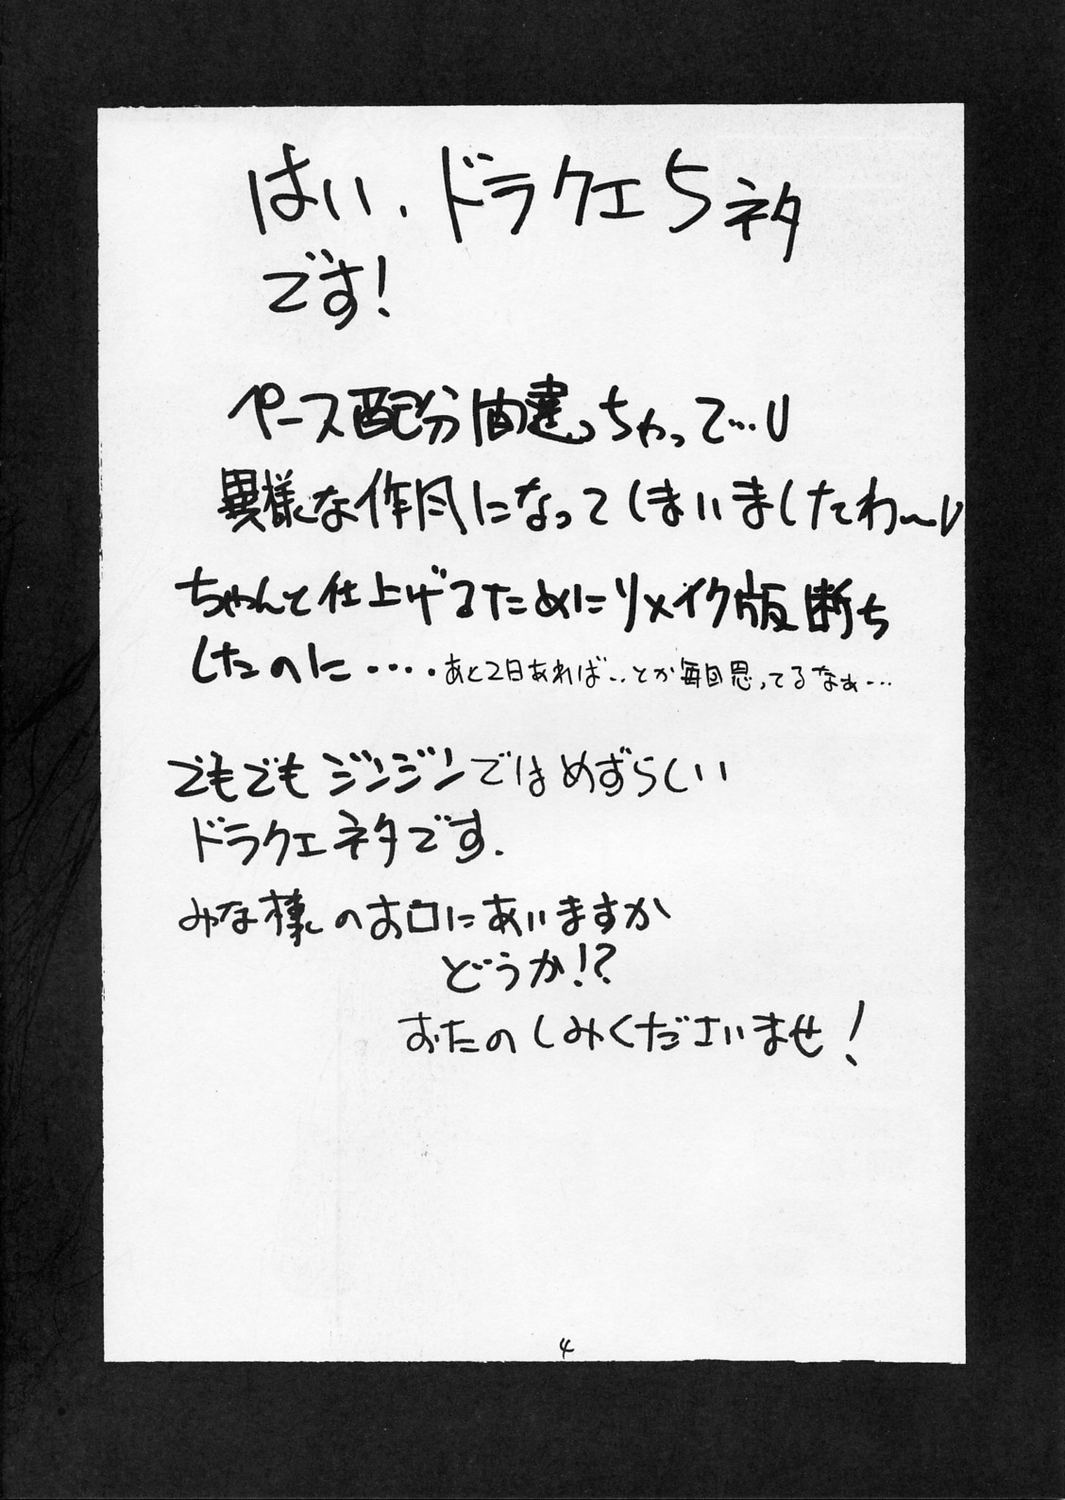 はい、ドラクエ5ネタ
です!
ペース配分間違っちゃって…
異様な作風になってしまいましたわ〜
ちゃんと仕上げるためにリメイク版断ち
したのに・・・・あと2日あれば・・とか毎回思ってるなぁ・・・
でもでもジンジンではめずらしい
ドラクエネタです.
みな様のお口にあいますか
どうか!?
おたのしみくださいませ!
4